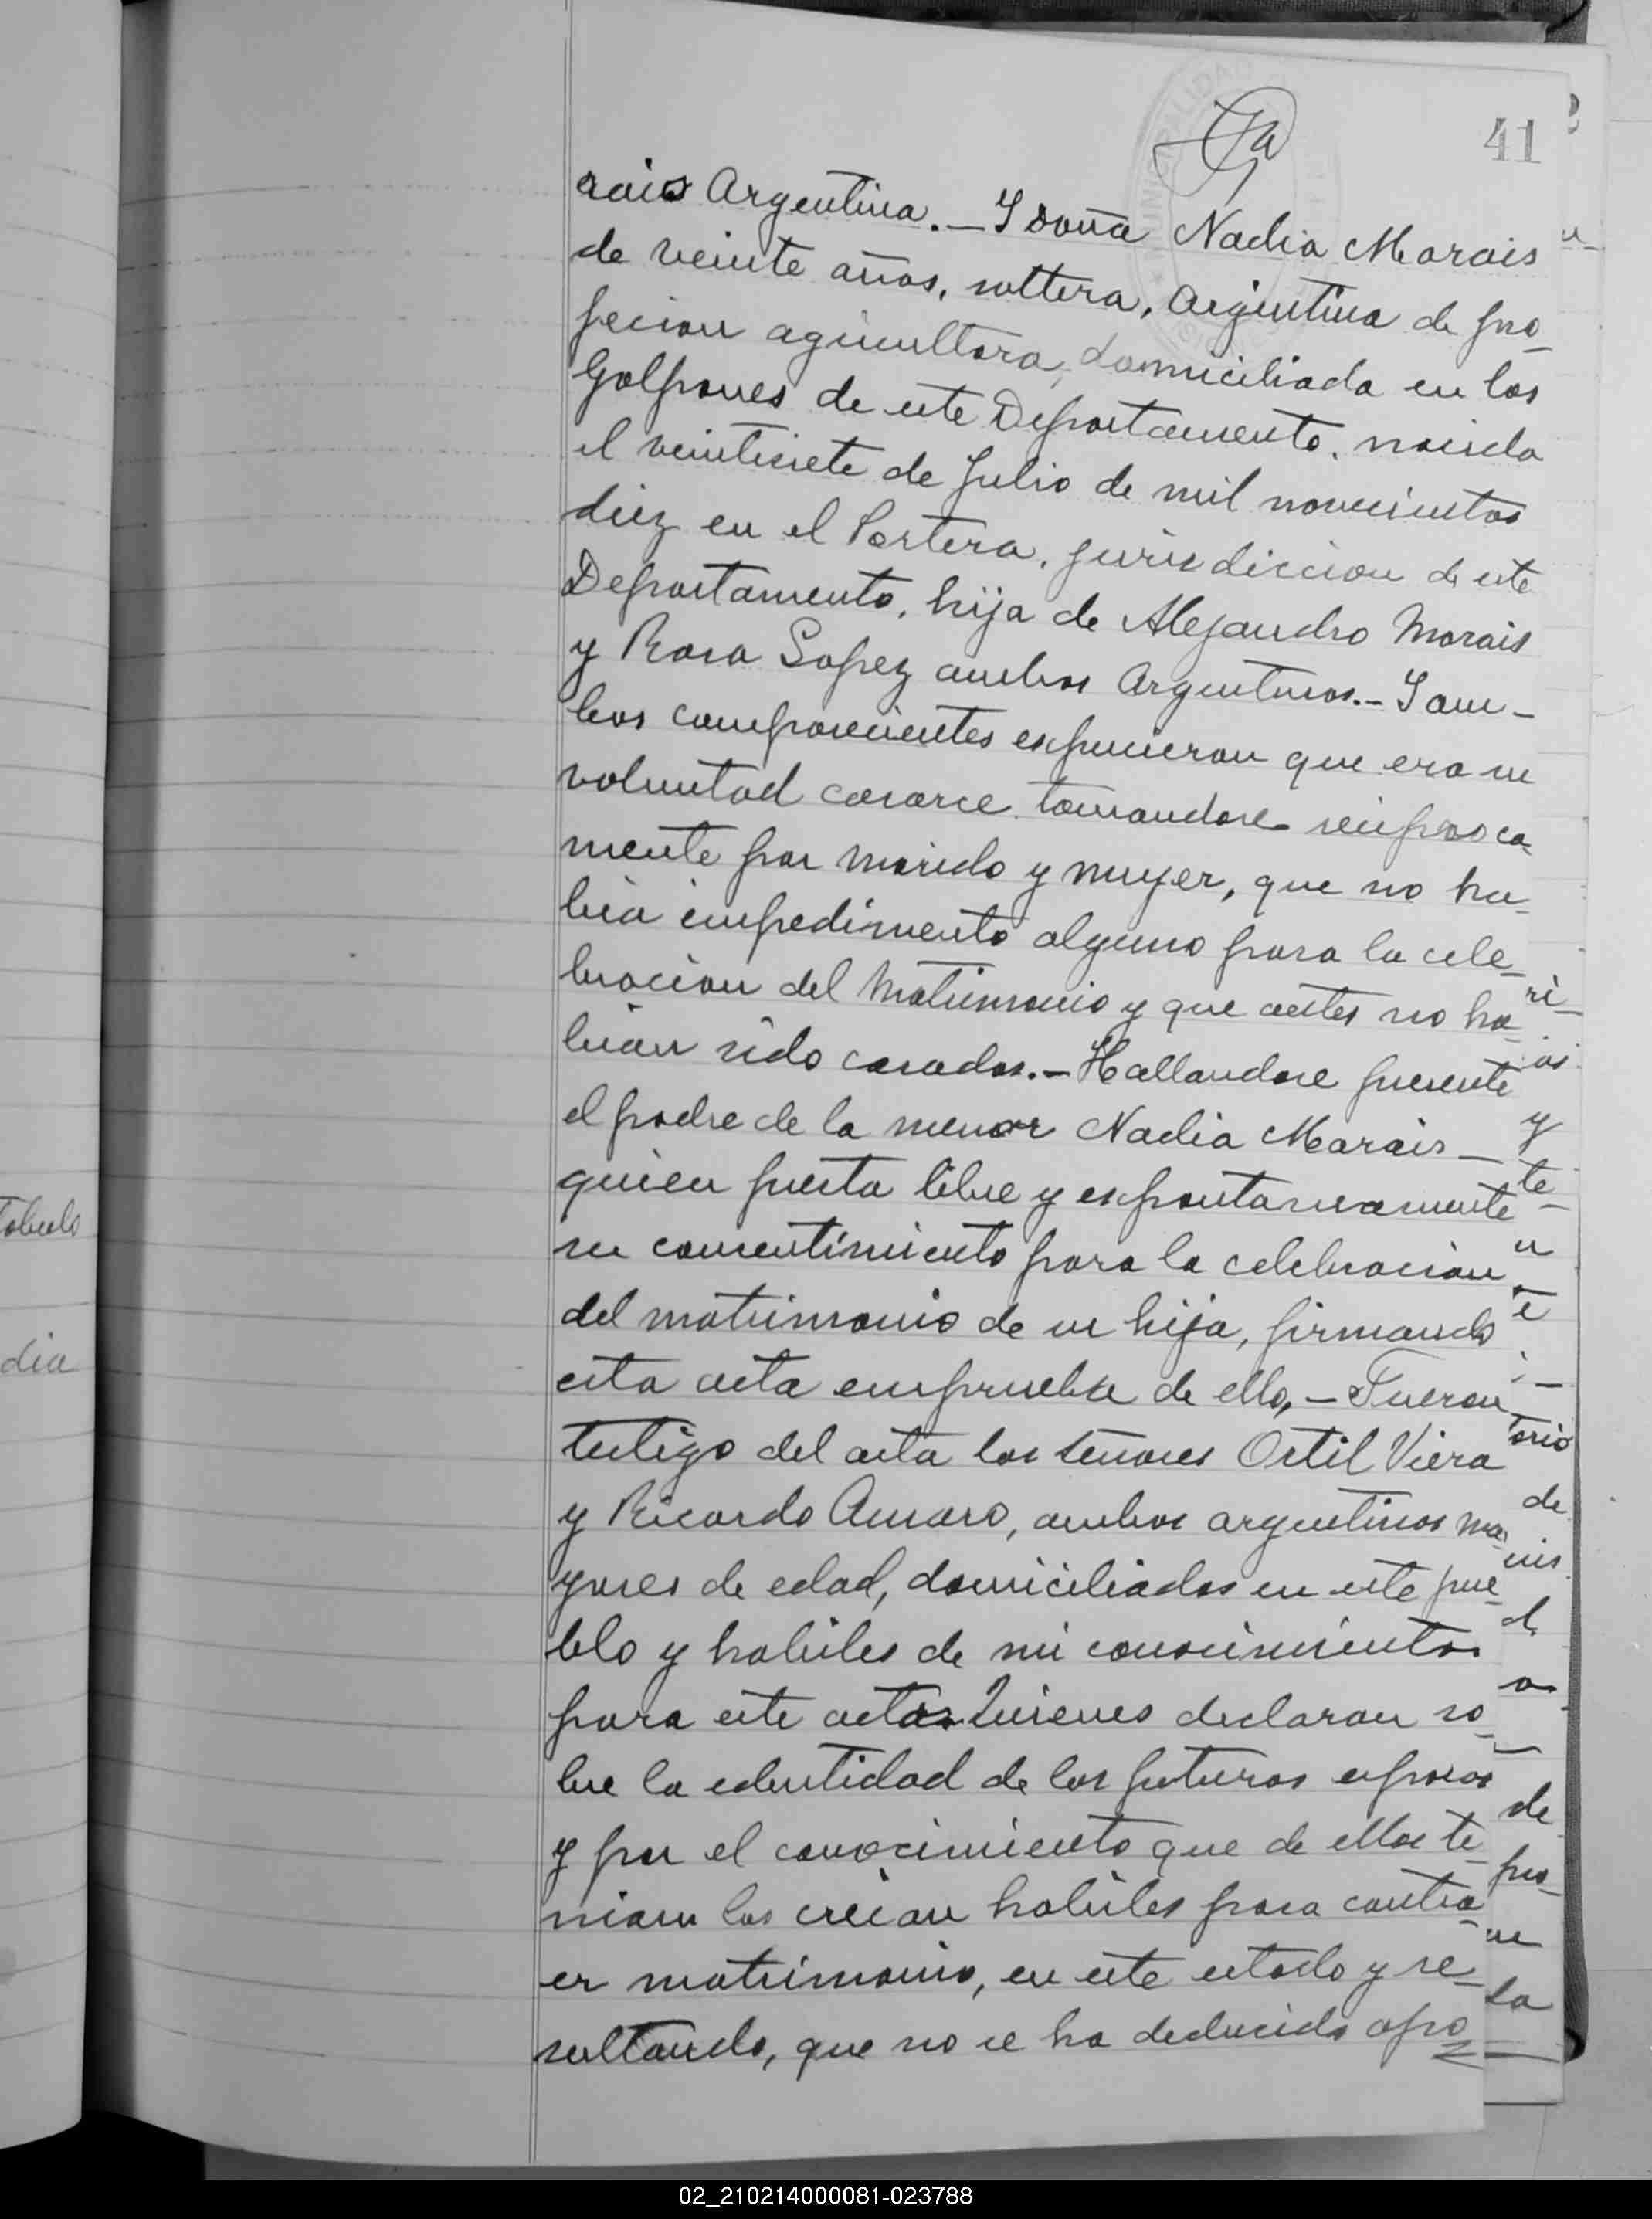 41
rais Argentina.- Y doña Nadia Marais
de veinte años, soltera, Argentina de pro-
fecion agricultora, domiciliada en los
Golpones de este Departamento. nacida
el veintisiete de Julio de mil novecientos
diez en el Portera, jurisdiccion de este
Departamento, hija de Alejandro Morais
y Rosa Lopez ambos Argentinos.- Y am-
bos comparecientes expucieron que era su
voluntad casarce tomandose reciproca-
mente por marido y muyer, que no ha-
bia impedimento alguno para la cele-
bracion del Matrimonio y que antes no ha-
bian sido casados.- Hallandose presente
el padre de la menor Nadia Marais-
quien presta libre y expontaneamente
su consentimiento para la celebracion
del matrimonio de su hija, firmando
esta acta emprueba de ello,- Fueron
testigo del acta los señores Ortil Viera
y Ricardo Amaro, ambos argentinos ma-
yores de edad, domiciliados en este pue-
blo y habiles de mi conocimiento
para este acto. Quienes declaran so-
bre la edentidad de los futuros esposos
y por el conocimiento que de ellos te-
niam los creian habiles para contra-
er matrimonio, en este estado y re-
sultando, que no se ha deducido opo-
dia
ri-
y
te-
torio
de
de
pro-
la
02_210214000081-023788